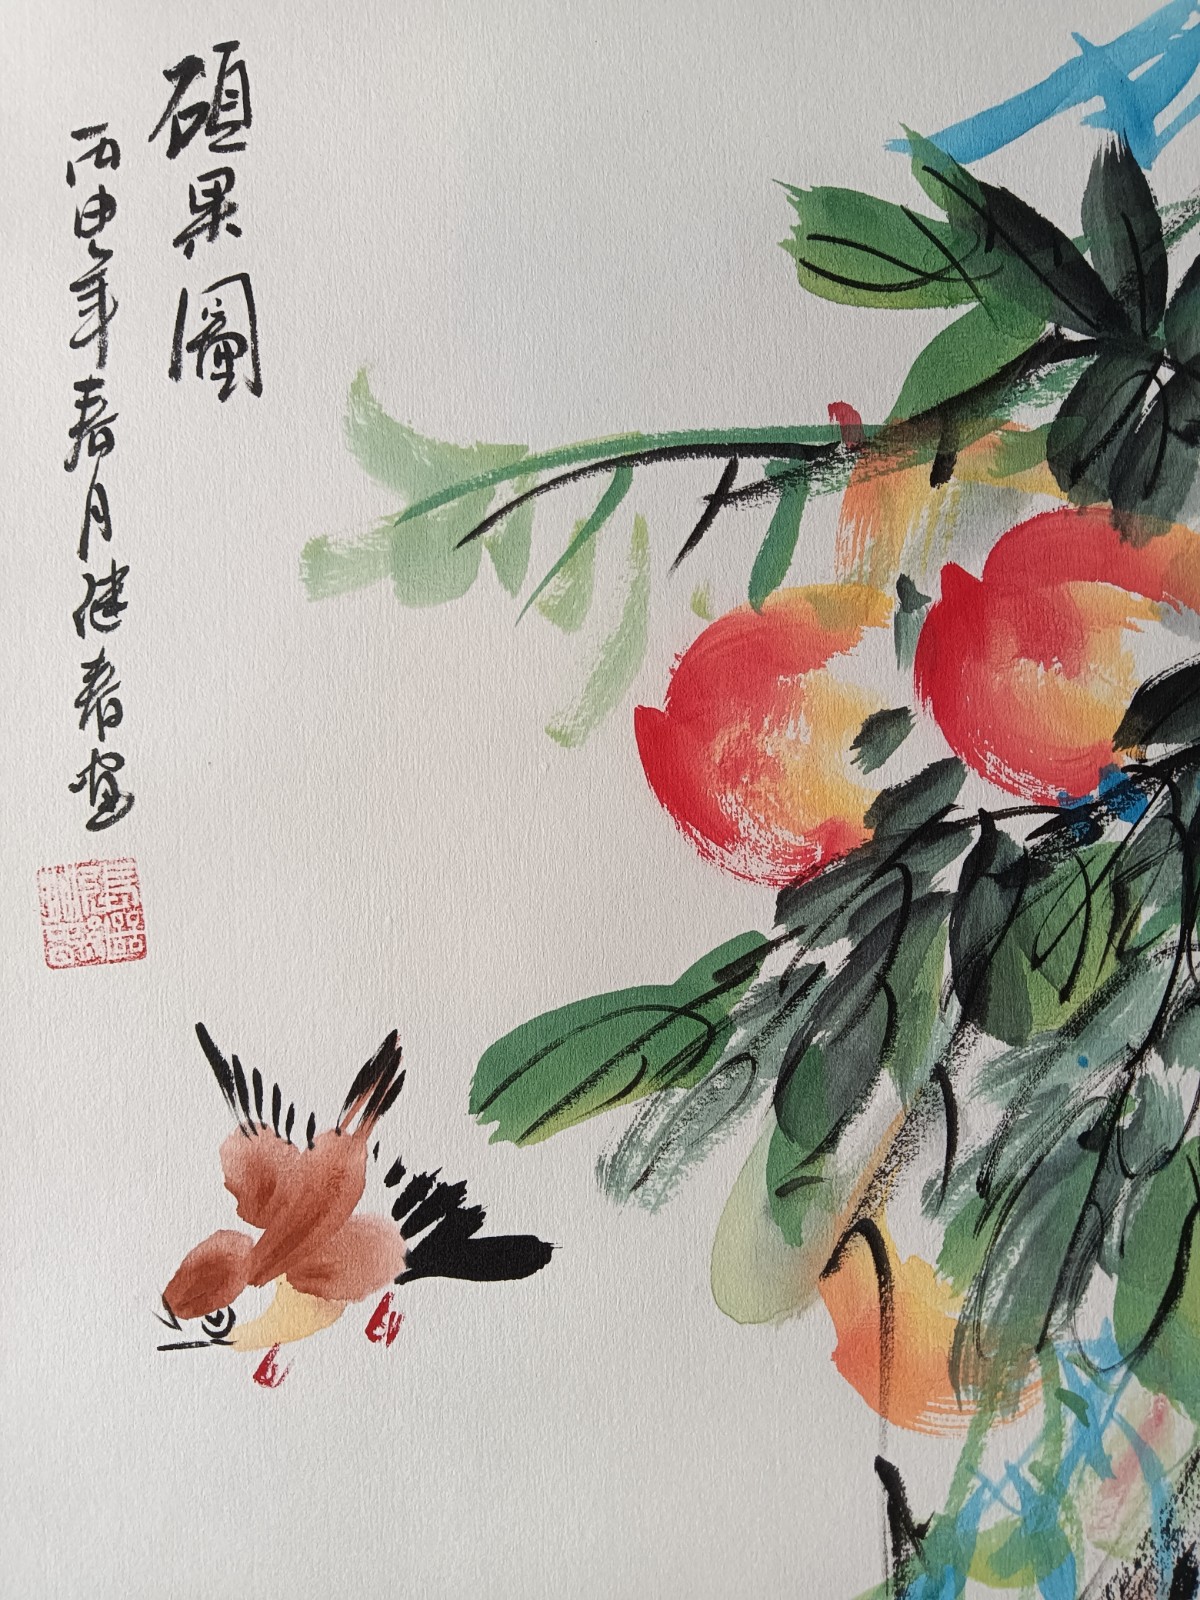 碩果圖
丙申年春月建春写